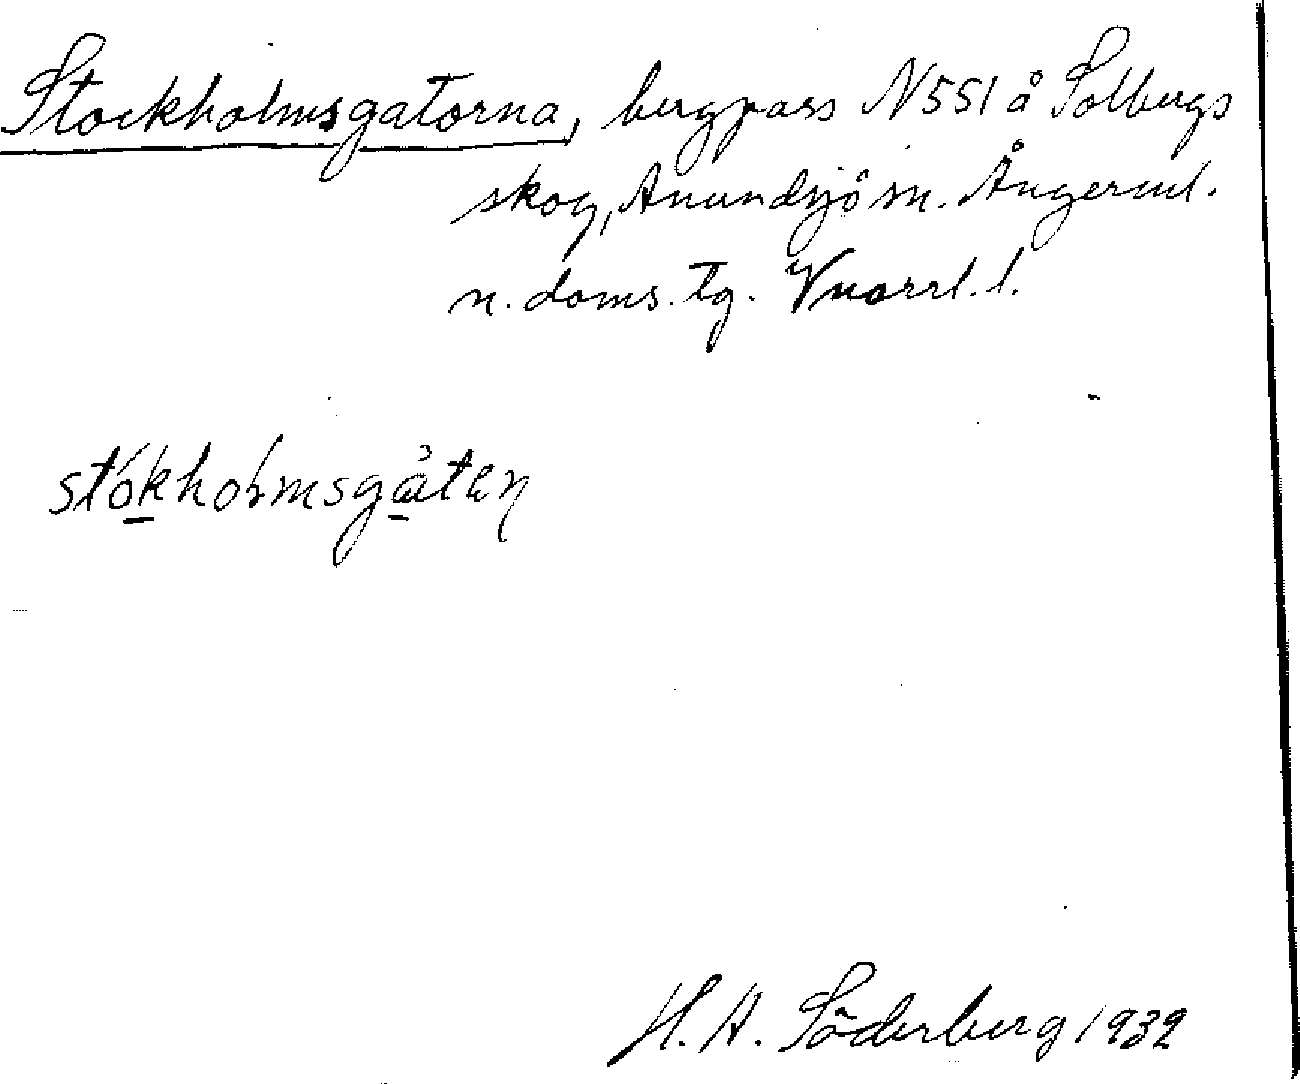 Stockholmsgatorna, bergpass N551 å Solbergs
skog, Anundsjö sn. Ångerml.
n. doms. tg. Vnorrl. l.
stókholmsgàten
H. A. Söderberg 1932